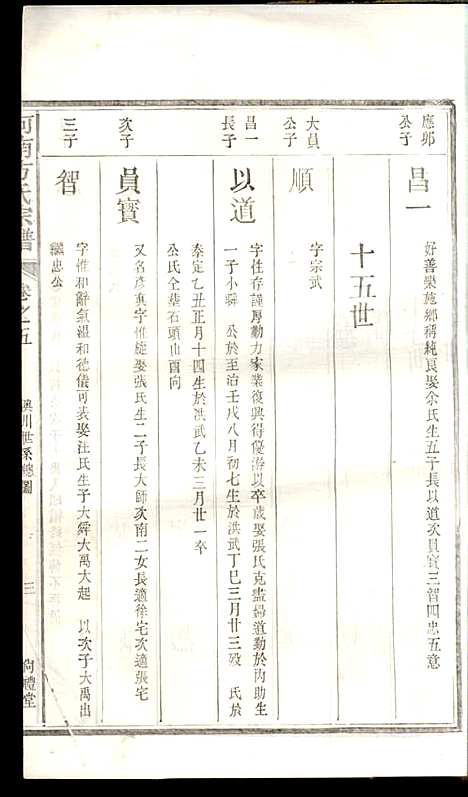 應卯公子
昌一
好善樂施鄉稱純良娶余氏生五子長以道次員寶三智四忠五意
十五世
大員公子
順
字宗武
昌一長子
以道
字性存謹厚勤力家業復興得優游以卒歲娶張氏克盡婦道勤於內助生
一子小䮾 公於至治壬戌八月初七生於洪武丁巳三月廿三歿 氏於
泰定乙丑正月十四生於洪武乙未三月廿一卒
公氏全墓石頭山酉向
次子
員寶
又名彥真字惟 娶張氏生二子長大師次南二女長適徐宅次適張宅
三子
智
字惟和辭氣溫和德儀可表娶汪氏生子大舜大禹大起 以次子大禹出
繼忠公
河南方氏宗譜
卷之五
川世系總圖
三
尚禮堂